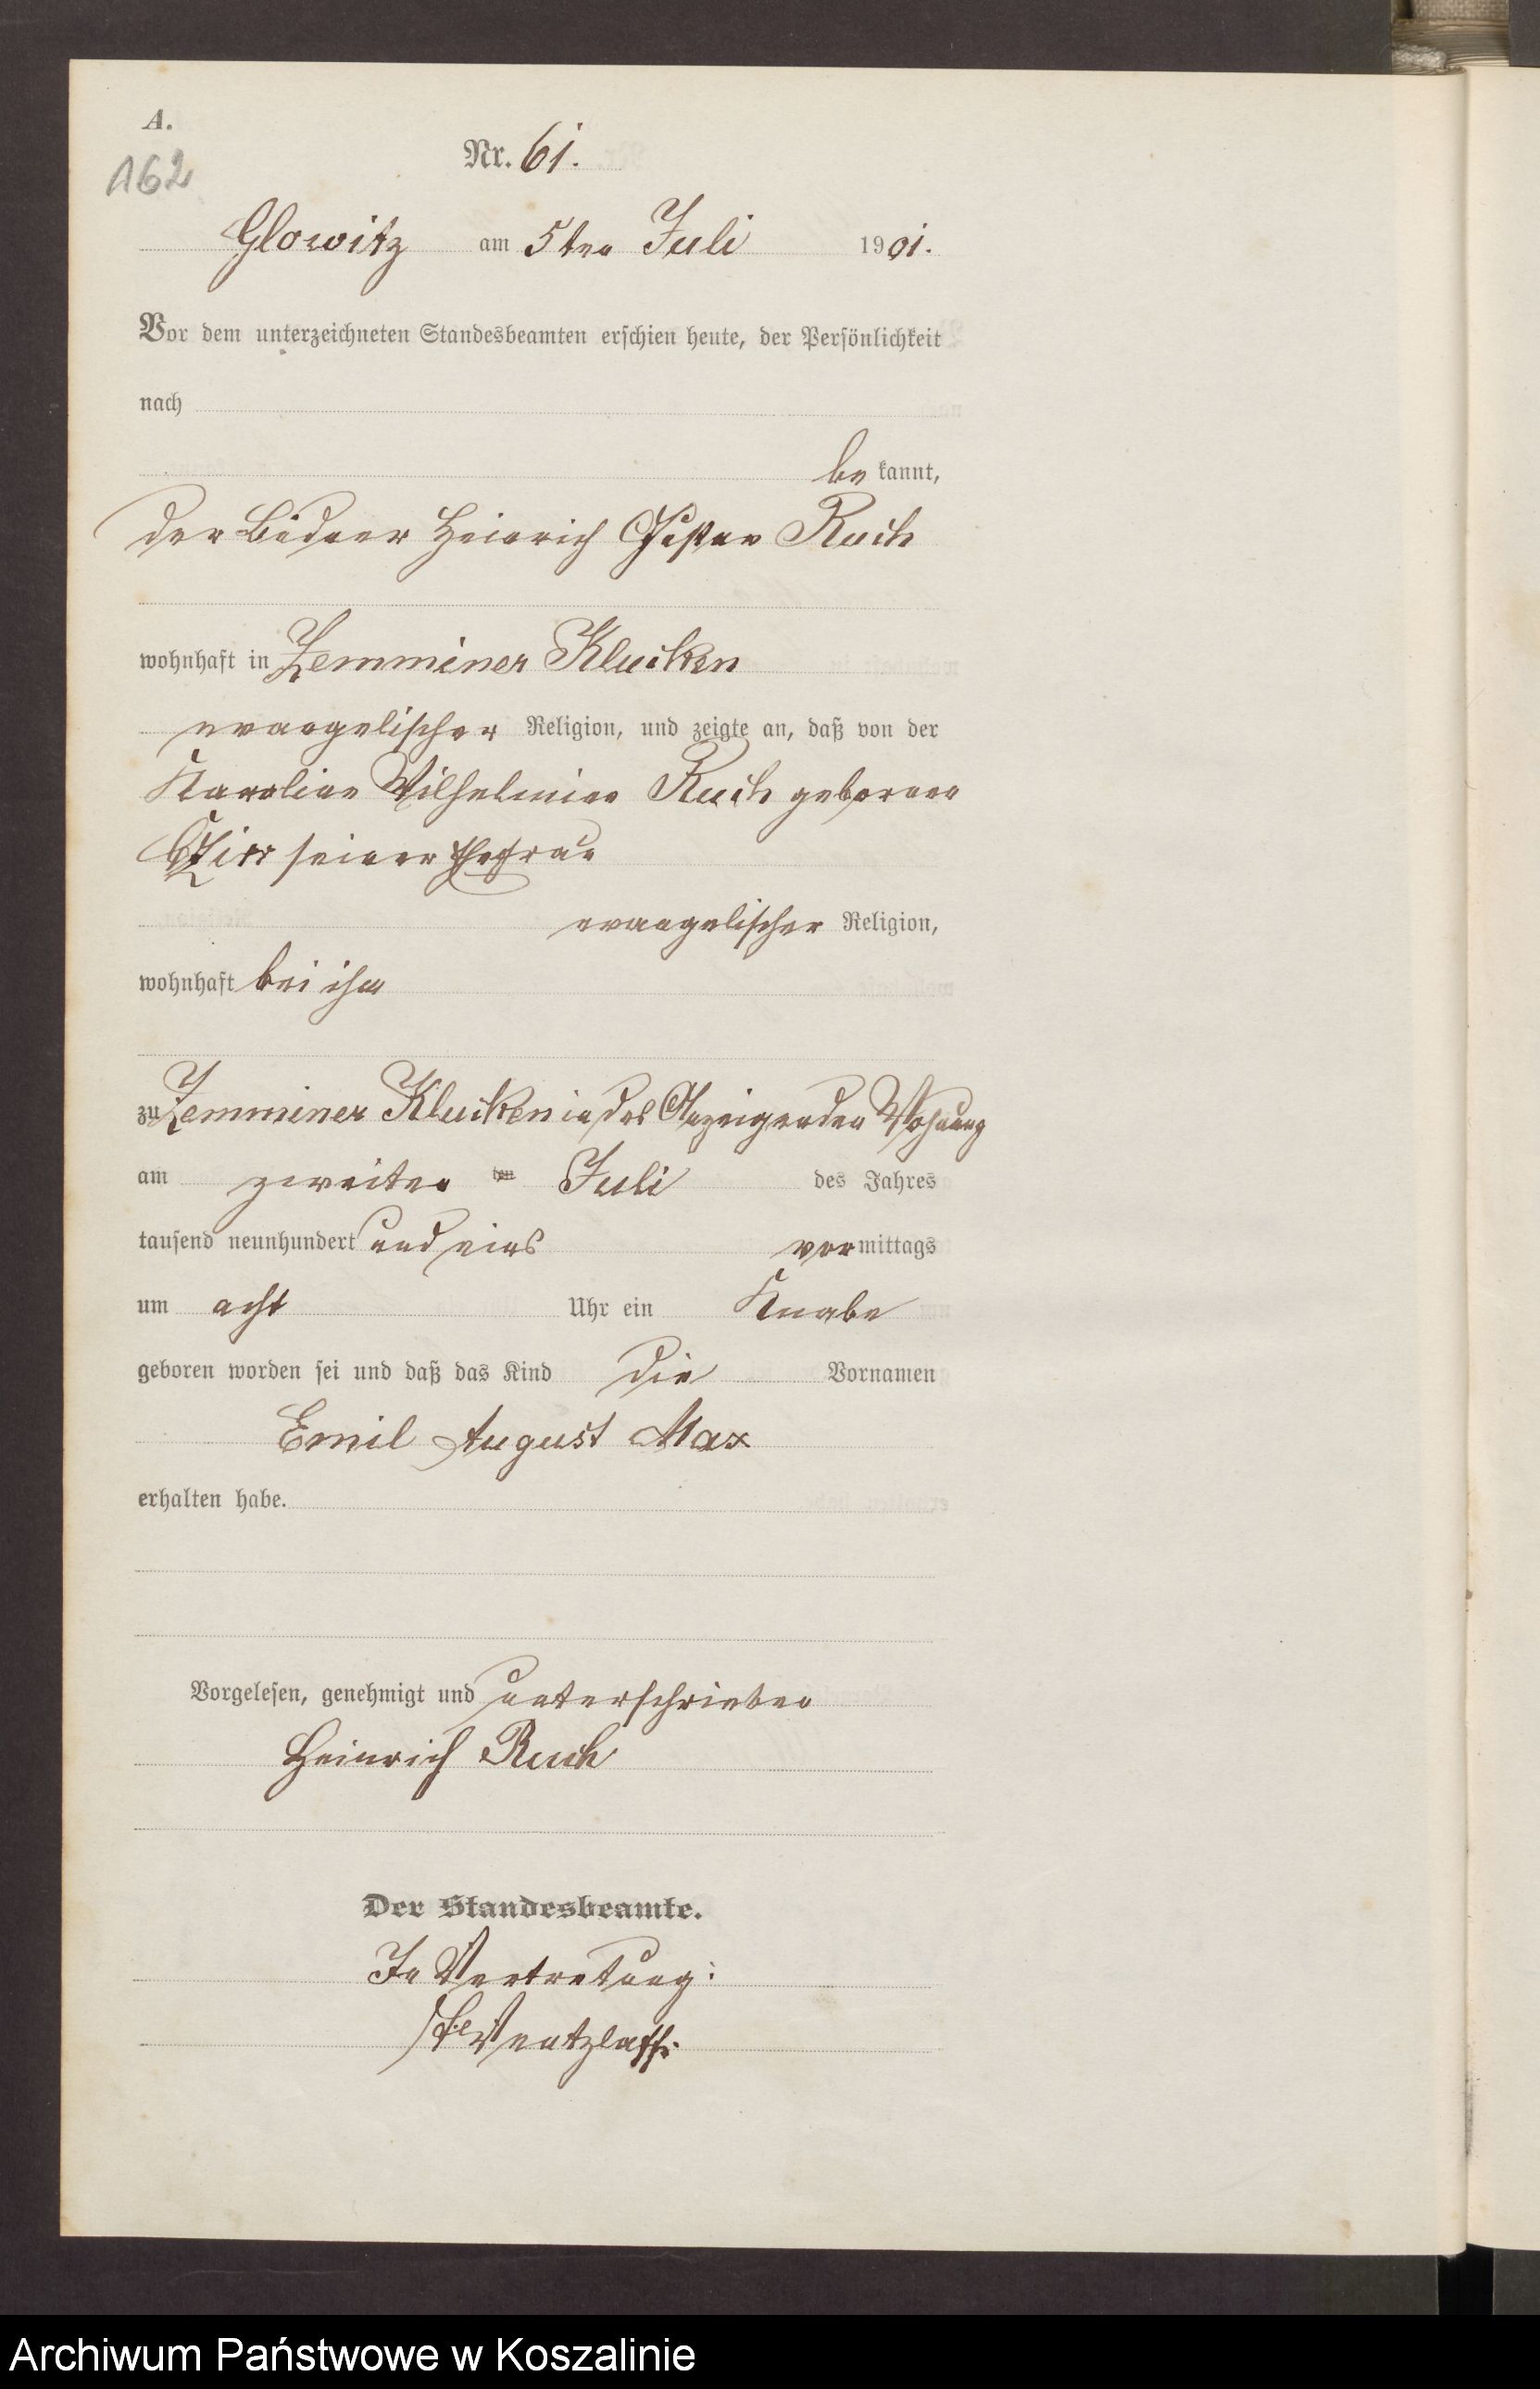 A.
162
Nr. 61.
Glowitz am 5ten Juli 1901.
Vor dem unterzeichneten Standesbeamten erschien heute, der Persönlichkeit
nach
be kannt,
der Büdner Heinrich Gustav Ruch
wohnhaft in Zemminer Klucken
evangelischer Religion, und zeigte an, daß von der
Karoline Wilhelmine Ruch geborene
seiner Ehefrau
evangelischer Religion,
wohnhaft bei ihm
zu Zemminer Klucken in des Anzeigenden Wohnung
am zweiten ten Juli des Jahres
tausend neunhundert und eins vormittags
um acht Uhr ein Knabe
geboren worden sei und daß das Kind die Vornamen
Emil August Max
erhalten habe.
Vorgelesen, genehmigt und unterschrieben
Heinrich Ruch
Der Standesbeamte.
In Vertretung:
Wentzlaff.
Archiwum Państwowe w Koszalinie